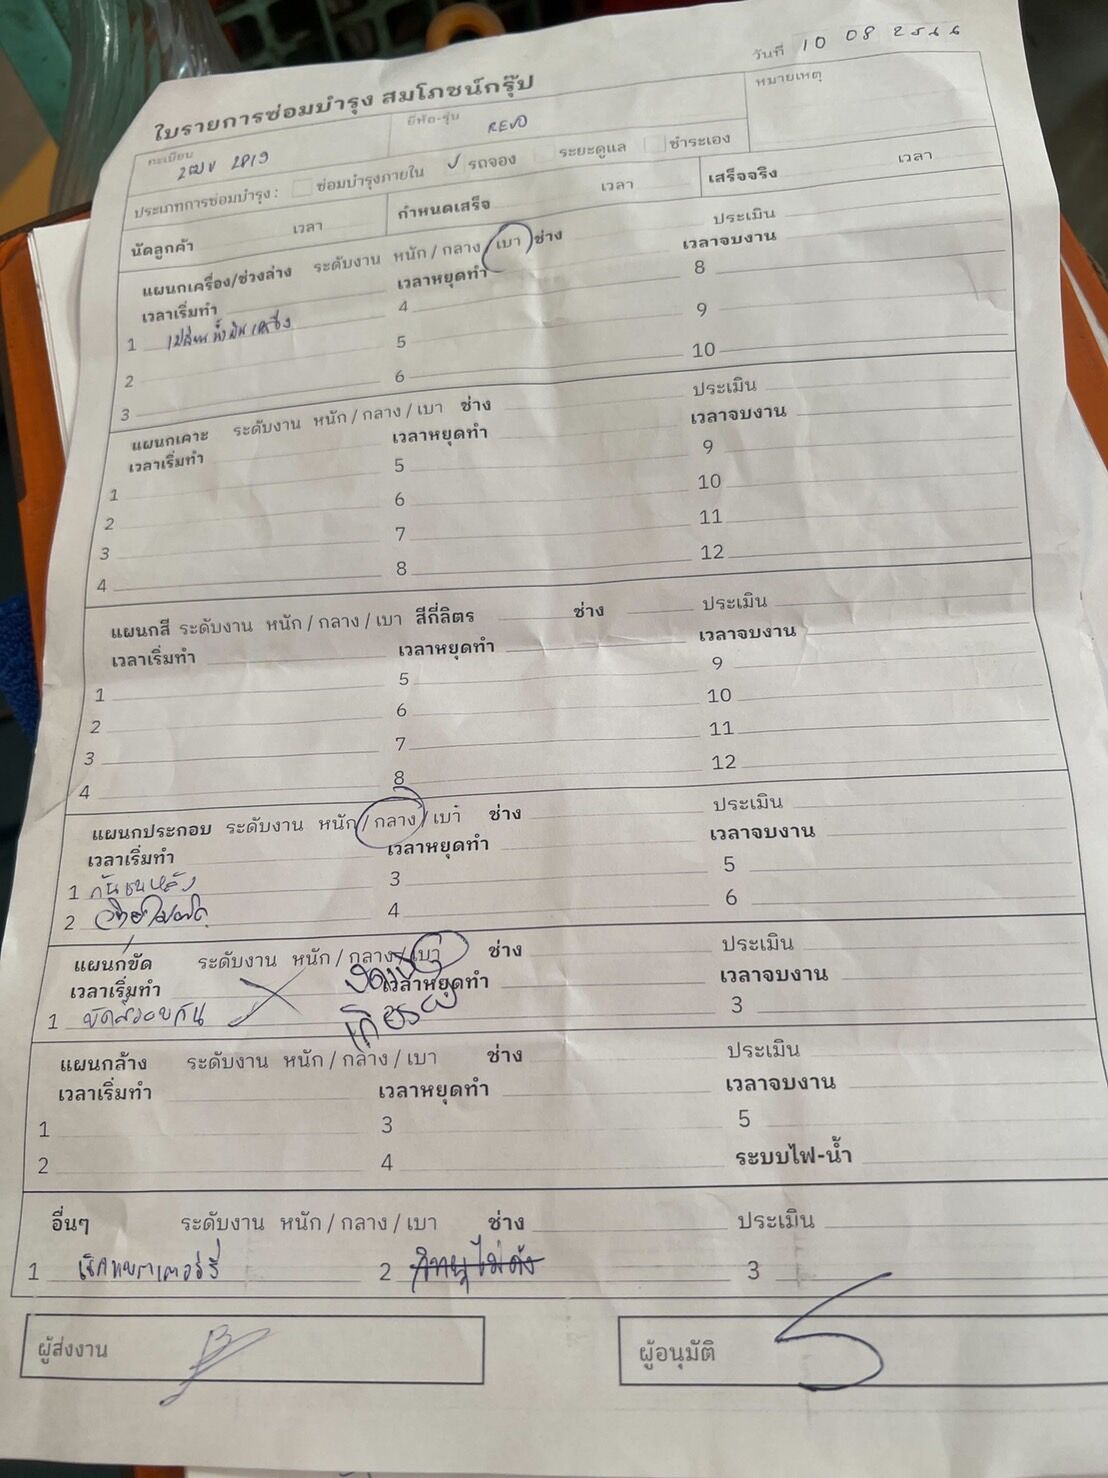 วันที่ 10 08 2566
ใบรายการซ่อมบำรุง สมโภชน์กรุ๊ป
ทะเบียน 2ฒข 2819 ยี่ห้อ-รุ่น REVO หมายเหตุ
ประเภทการซ่อมบำรุง : ซ่อมบำรุงภายใน ✓ รถจอง ระยะดูแล ชำระเอง
นัดลูกค้า เวลา กำหนดเสร็จ เวลา เสร็จจริง เวลา
แผนกเครื่อง/ช่วงล่าง ระดับงาน หนัก / กลาง / เบา ช่าง ประเมิน
เวลาเริ่มทำ เวลาหยุดทำ เวลาจบงาน
1 4 8
2 5 9
3 6 10
แผนกเคาะ ระดับงาน หนัก / กลาง / เบา ช่าง ประเมิน
เวลาเริ่มทำ เวลาหยุดทำ เวลาจบงาน
1 5 9
2 6 10
3 7 11
4 8 12
แผนกสี ระดับงาน หนัก / กลาง / เบา สีกี่ลิตร ช่าง ประเมิน
เวลาเริ่มทำ เวลาหยุดทำ เวลาจบงาน
1 5 9
2 6 10
3 7 11
4 8 12
แผนกประกอบ ระดับงาน หนัก / กลาง / เบา ช่าง ประเมิน
เวลาเริ่มทำ เวลาหยุดทำ เวลาจบงาน
1 กันชนหลัง 3 5
2 4 6
แผนกขัด ระดับงาน หนัก / กลาง / เบา ช่าง ประเมิน
เวลาเริ่มทำ เวลาหยุดทำ เวลาจบงาน
1 ขัดสีรอบคัน 3
แผนกล้าง ระดับงาน หนัก / กลาง / เบา ช่าง ประเมิน
เวลาเริ่มทำ เวลาหยุดทำ เวลาจบงาน
1 3 5
2 4 ระบบไฟ-น้ำ
อื่นๆ ระดับงาน หนัก / กลาง / เบา ช่าง ประเมิน
1 เช็คแบตเตอร์รี่ 2 วิทยุไม่ดัง 3
ผู้ส่งงาน ผู้อนุมัติ